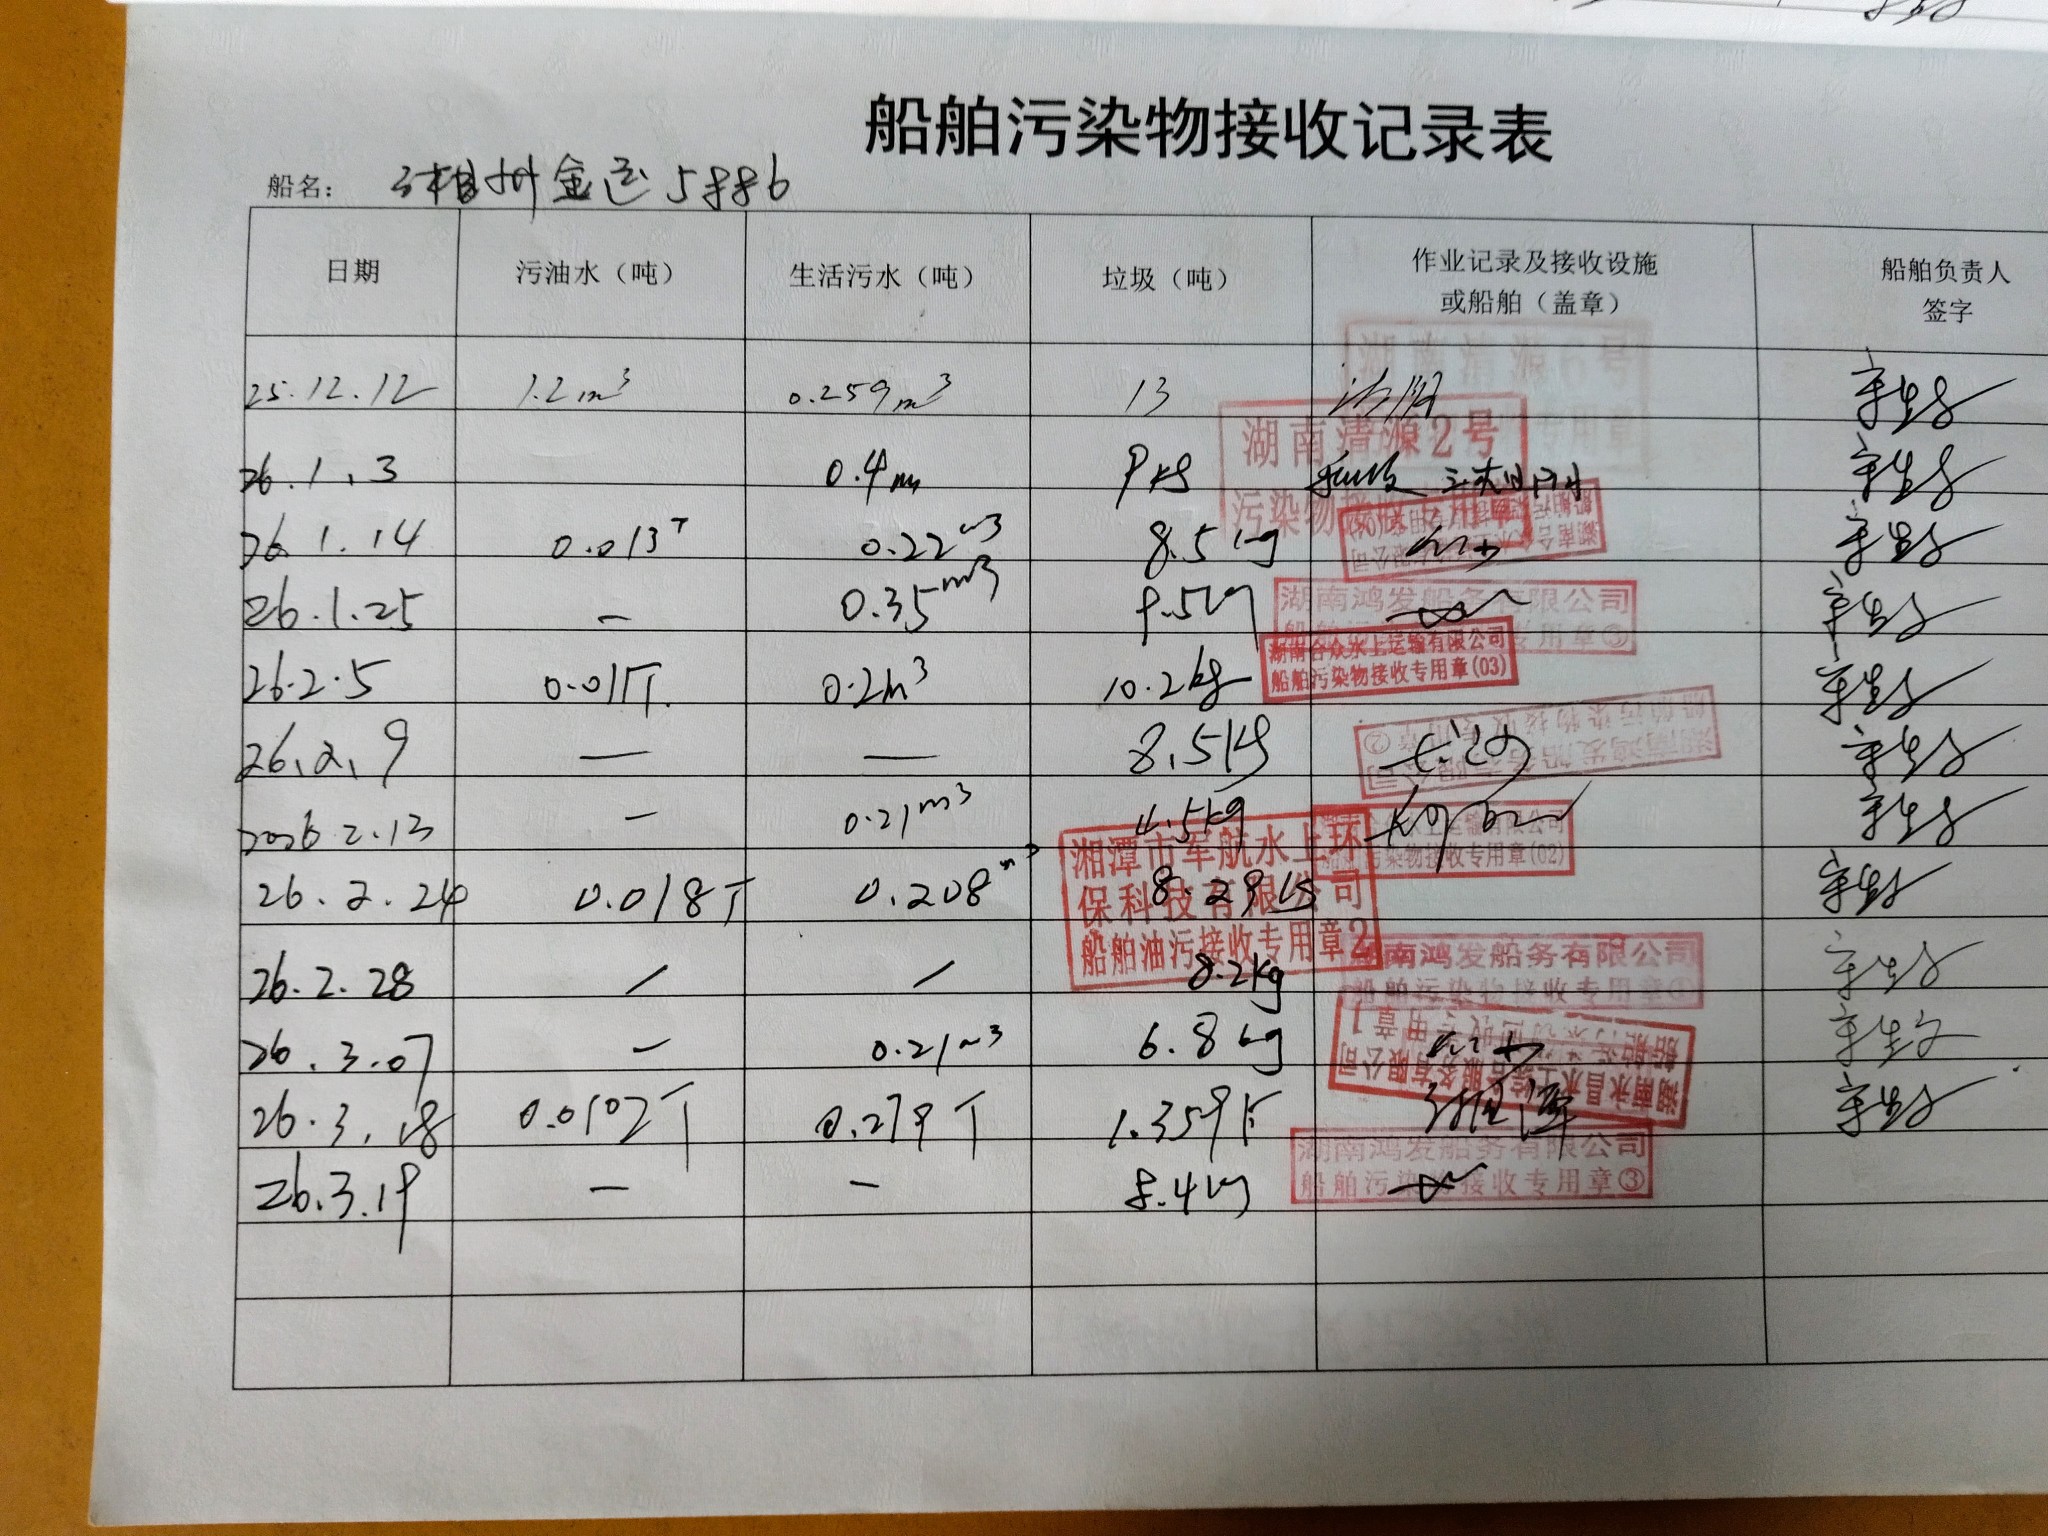 船舶污染物接收记录表
船名: 湘州金运5886
日期 污油水（吨） 生活污水（吨） 垃圾（吨） 作业记录及接收设施或船舶（盖章） 船舶负责人签字
25.12.12 1.2m³ 0.259m³ 13
湖南清源6号
专用章
26.1.3 0.4m 9kg
湖南清源2号
污染物接收专用章
26.1.14 0.013T 0.22m³ 8.5kg
26.1.25 — 0.35m³ 9.5kg
湖南鸿发船务有限公司
专用章③
26.2.5 0.011T. 0.2m³ 10.2kg
湖南合众水上运输有限公司
船舶污染物接收专用章(03)
26.2.9 — — 8.5kg 长沙
湖南鸿发船务有限公司
船舶污染物接收专用章②
2026.2.13 — 0.21m³ 4.5kg
水上运输有限公司
污染物接收专用章(02)
26.2.24 0.018T 0.208m³ 8.29kg
湘潭市军航水上环
保科技有限公司
船舶油污接收专用章2
26.2.28 / / 8.2kg
湖南鸿发船务有限公司
船舶污染物接收专用章①
26.3.07 — 0.21m³ 6.8kg
湖南永昌水上综合服务有限公司
26.3.18 0.0102T 0.279T 1.359斤 湘潭
26.3.19 — — 8.4kg
湖南鸿发船务有限公司
船舶污染物接收专用章③